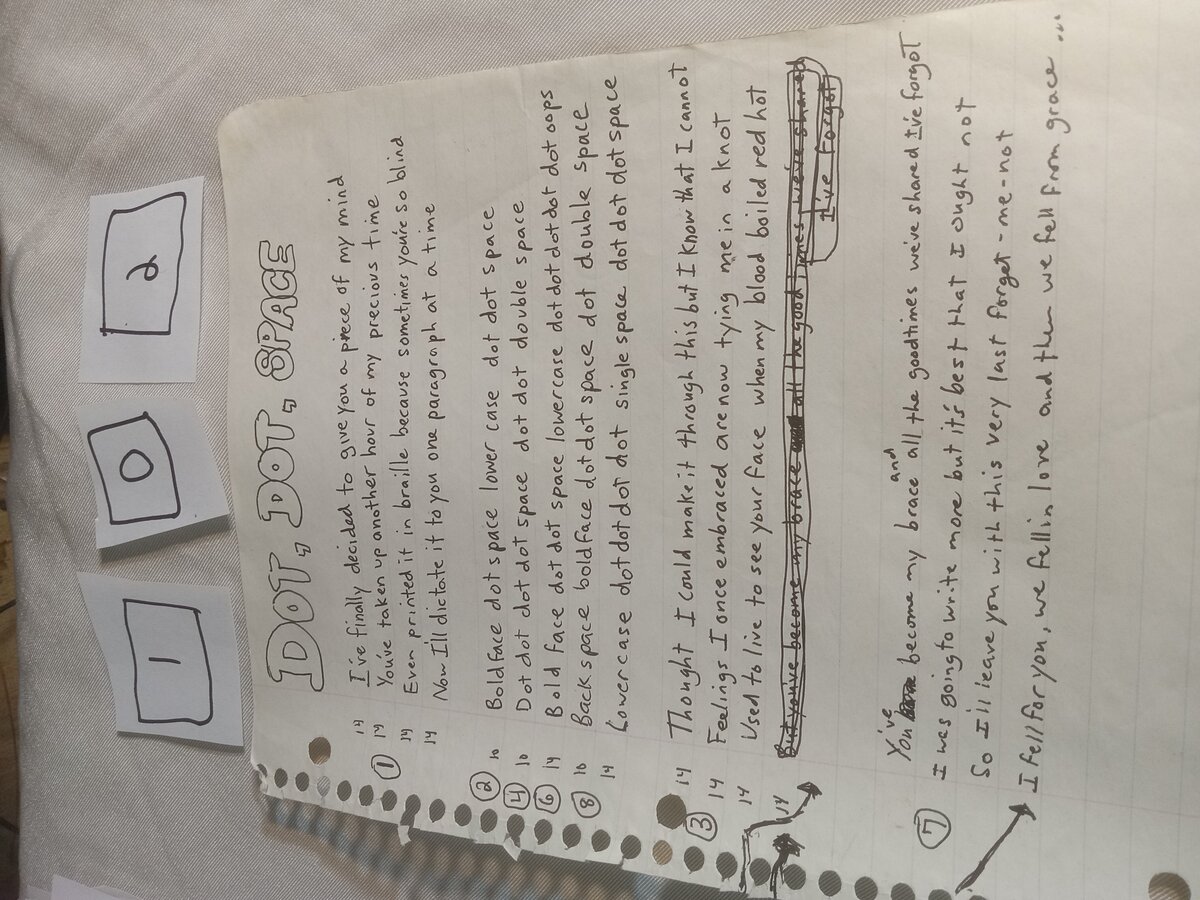 1 0 2
DOT, DOT, SPACE
14 I've finally decided to give you a piece of my mind
① 14 You've taken up another hour of my precious time
14 Even printed it in braille because sometimes you're so blind
14 Now I'll dictate it to you one paragraph at a time
② 10 Boldface dot space lower case dot dot space
④ 10 Dot dot dot space dot dot dot double space
⑥ 14 Bold face dot dot space lowercase dot dot dot dot dot oops
⑧ 10 Back space boldface dot dot space dot double space
14 Lowercase dot dot dot dot single space dot dot dot space
14 Thought I could make it through this but I know that I cannot
③ 14 Feelings I once embraced are now tying me in a knot
14 Used to live to see your face when my blood boiled red hot
14 But you've become my brace all the good times we've shared
I've forgot
You've become my brace and all the good times we've shared I've forgot
⑦ I was going to write more but it's best that I ought not
So I'll leave you with this very last forget-me-not
I fell for you, we fell in love and then we fell from grace ...